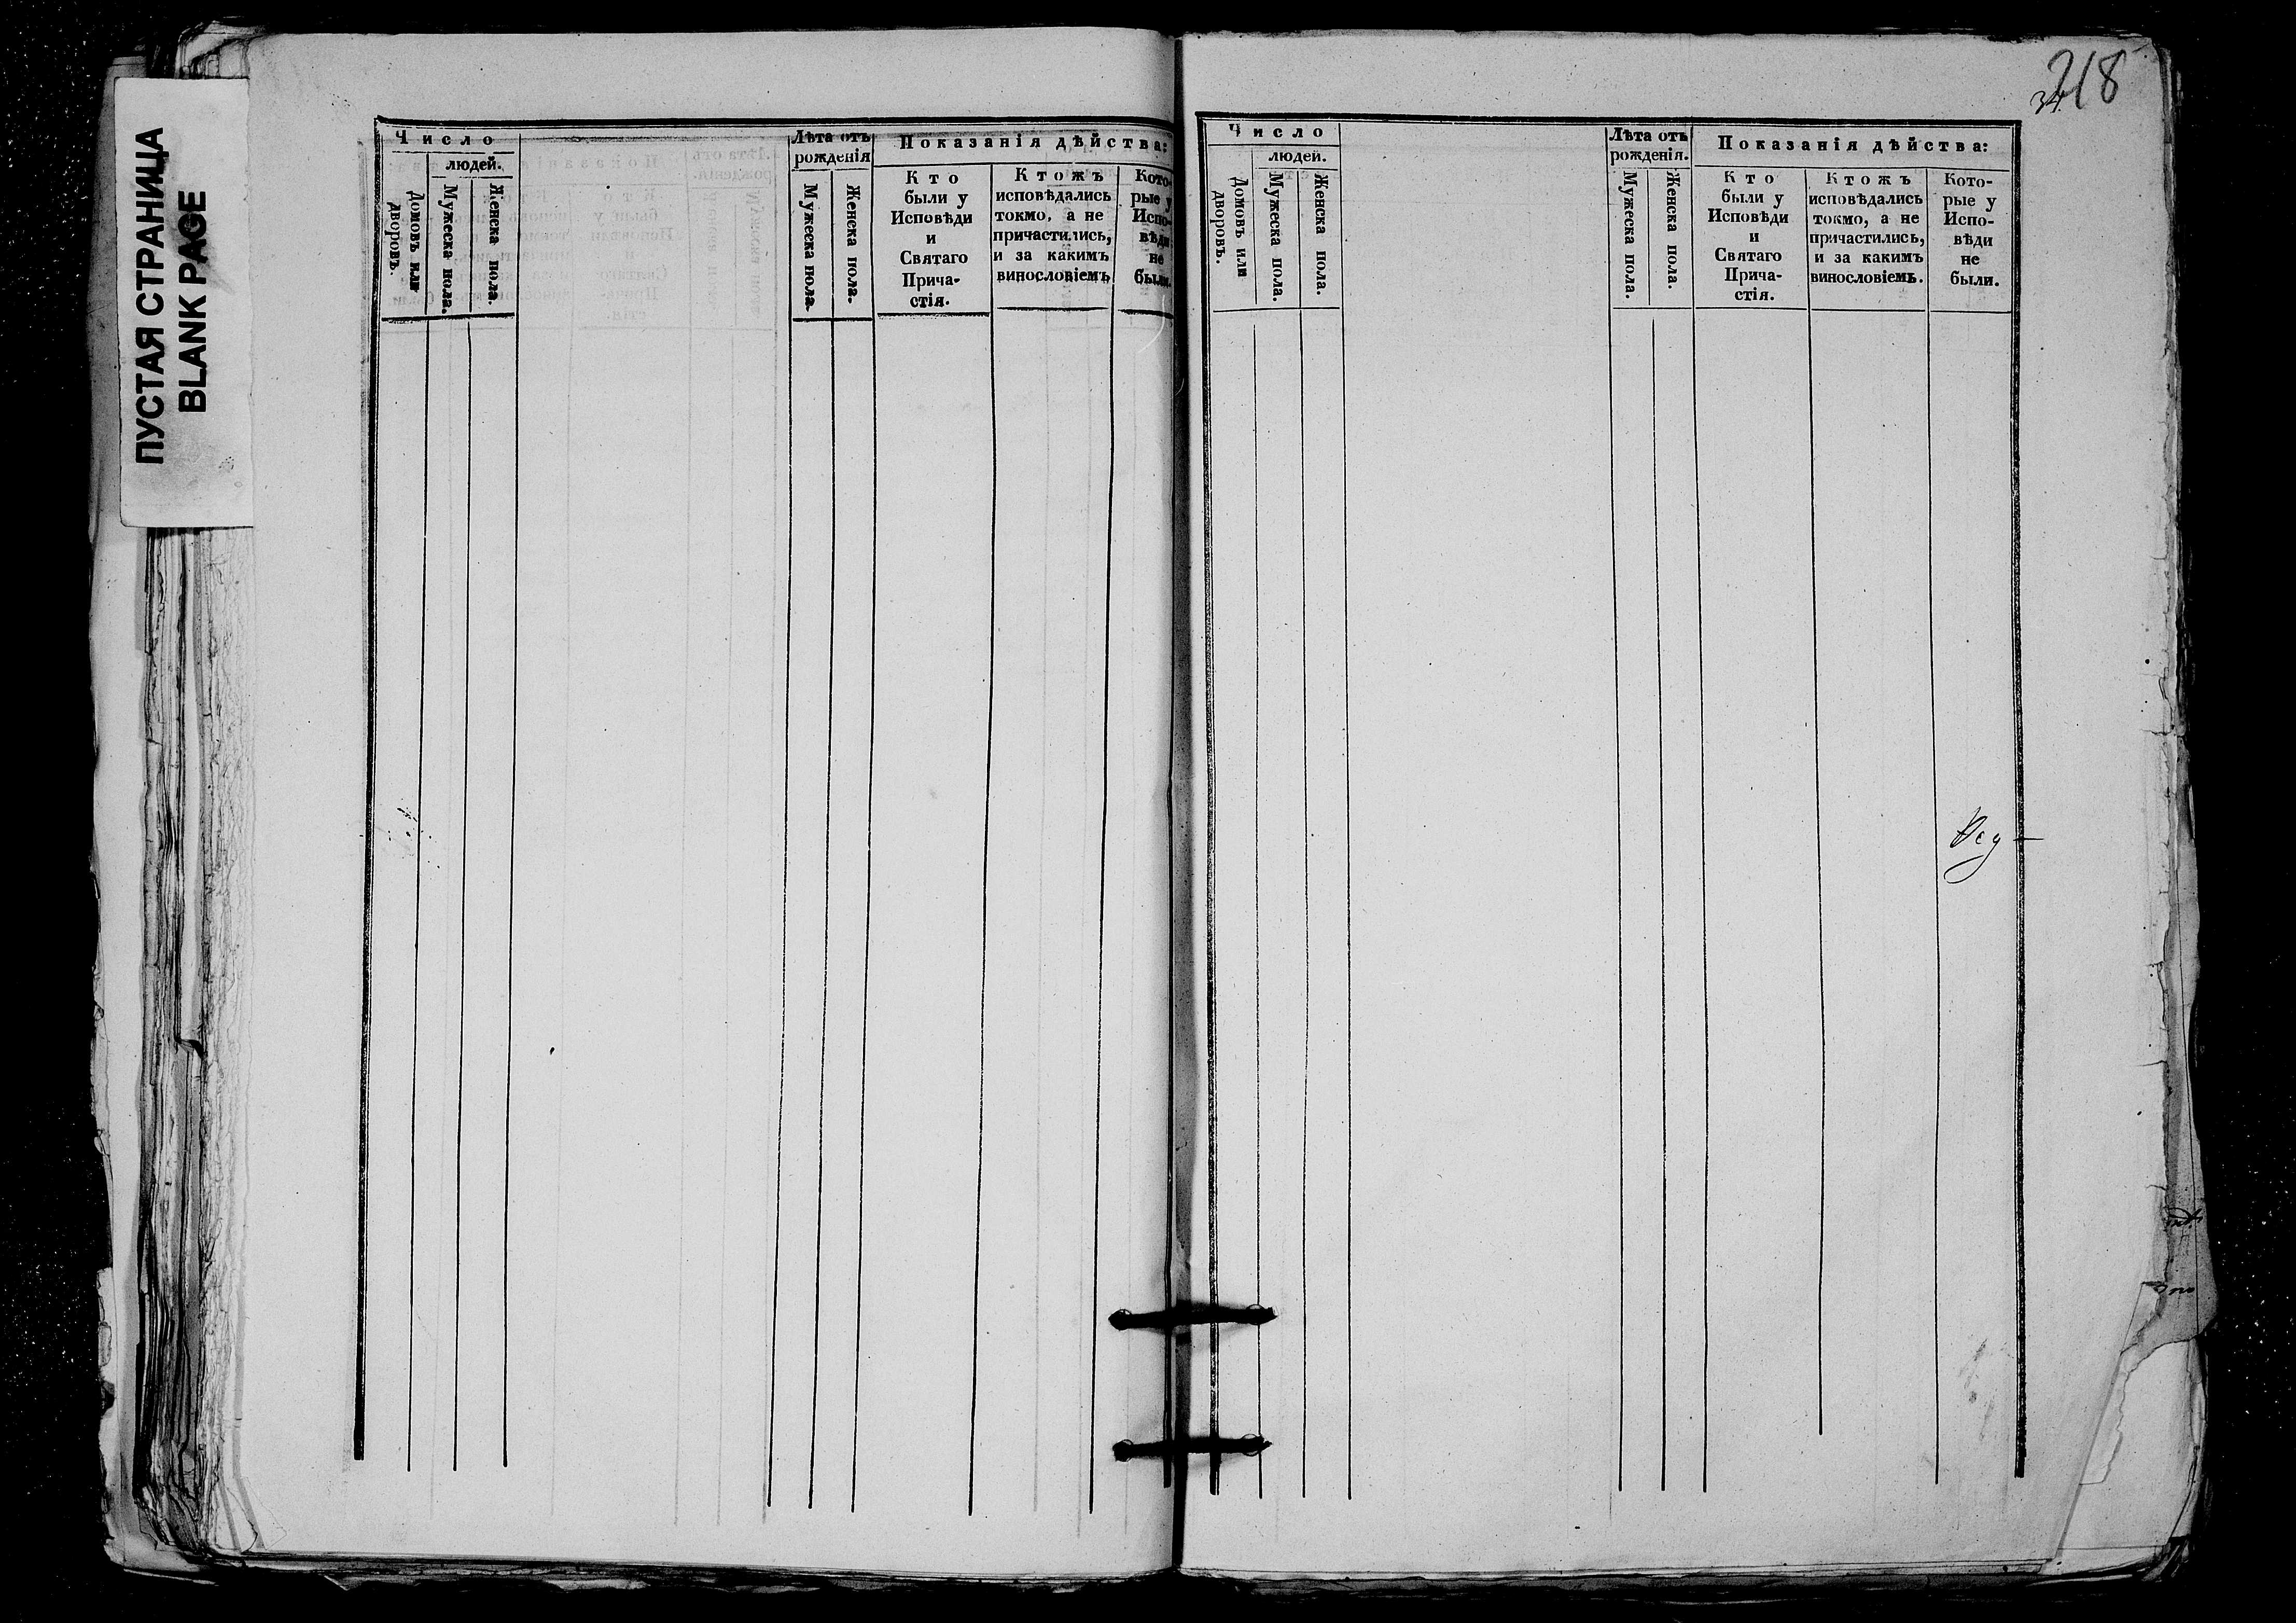 ПУСТАЯ СТРАНИЦА
BLANK PAGE
Число
людей.
Домовъ или
дворовъ.
Мужеска пола.
Женска пола.
Лѣта отъ
рожденія
Мужеска пола.
Женска пола.
Показанія дѣйства:
Кто
были у
Исповѣди
и
Святаго
Прича-
стія.
Ктожъ
исповѣдались
токмо, а не
причастились,
и за какимъ
винословіемъ
Кото-
рые у
Испо-
вѣди
не
были.
218
34
Число
людей.
Домовъ или
дворовъ.
Мужеска пола.
Женска пола.
Лѣта отъ
рожденія.
Мужеска пола.
Женска пола.
Показанія дѣйства:
Кто
были у
Исповѣди
и
Святаго
Прича-
стія.
Ктожъ
исповѣдались
токмо, а не
причастились,
и за какимъ
винословіемъ.
Кото-
рые у
Испо-
вѣди
не
были.